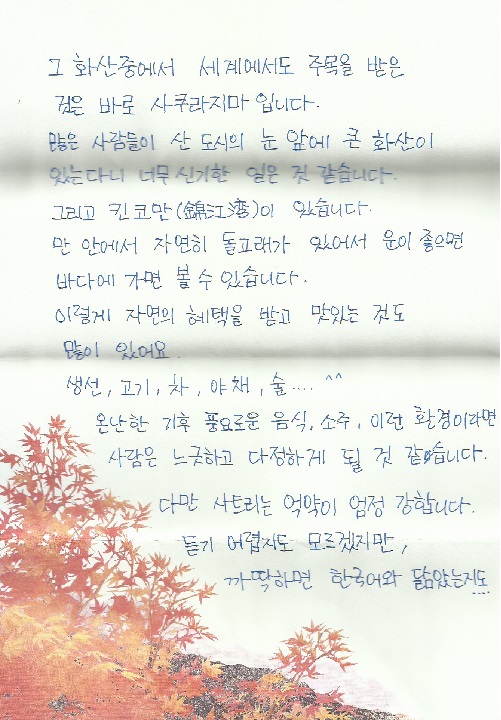 그 화산중에서 세계에서도 주목을 받은
것은 바로 사쿠라지마입니다.
많은 사람들이 산 도시의 눈 앞에 큰 화산이
있는다니 너무 신기한 일은 것 같습니다.
그리고 킨코만(錦江湾)이 있습니다.
만 안에서 자연히 돌고래가 있어서 운이 좋으면
바다에 가면 볼 수 있습니다.
이렇게 자연의 혜택을 받고 맛있는 것도
많이 있어요.
생선, 고기, 차, 야채, 술.... ^^
온난한 기후 풍요로운 음식, 소주, 이런 환경이라면
사람은 느긋하고 다정하게 될 것 같습니다.
다만 사트리는 억약이 엄정 강합니다.
듣기 어렵지도 모르겠지만,
까딱하면 한국어와 닮았는지도...